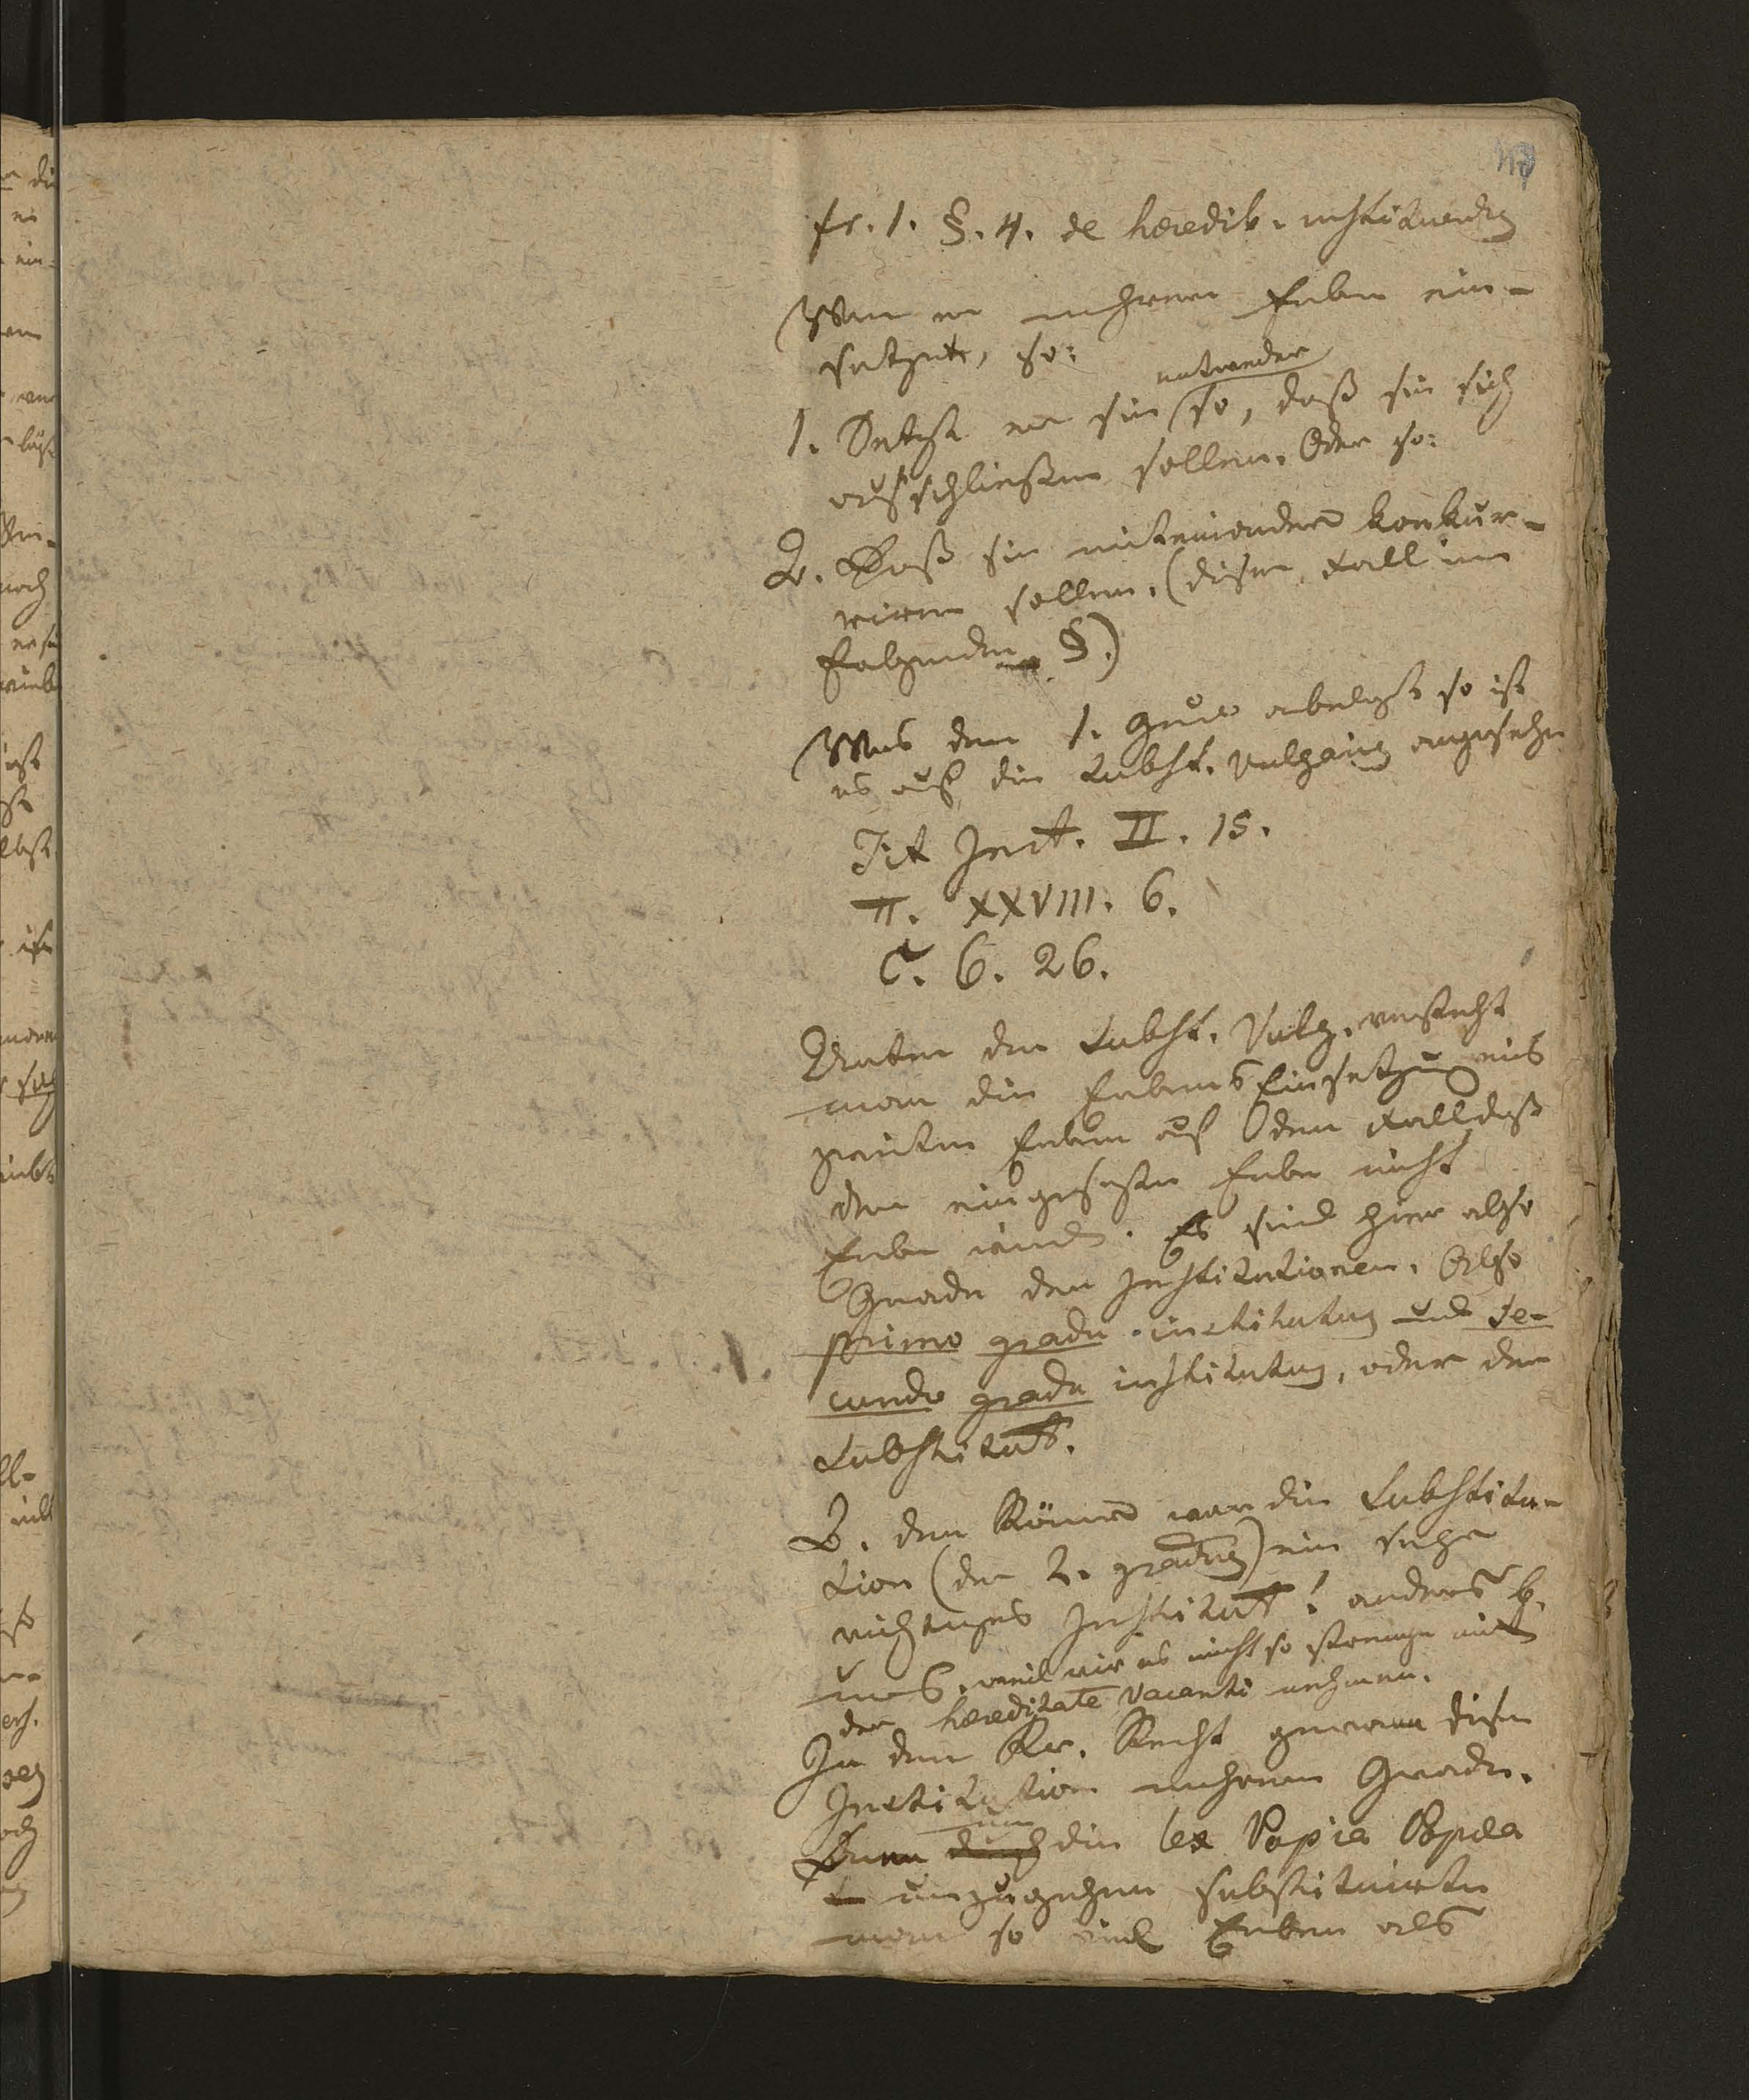 fr. 1. §. 4. de heredib. instituendis
Wenn er mehrere Erben ein-
setzete, so:
1. Setzt er sie entweder so, daß sie sich
ausschließen sollen. Oder so:
2. Daß sie miteinander konkur-
riren sollen. (dieser Fall im
folgenden §.)
Was den 1. anbelangt so ist
es auf die Subst. vulgaris angesehen
Tit Inst. II. 15.
π. XXVIII. 6.
C. 6. 26.
Unter der Subst. Vulg. versteht
man die Erbens Einsetzung eines
zweiten Erben auf den Fall daß
der eingesezte Erbe nicht
Erbe würde. Es sind hier also
Grade der Institutionen. Also
primo gradu institutus und se-
cundo gradu institutus, oder der
Substitut.
B. den Römern war die Substitu-
tion (der 2. gradus) ein sehr
wichtiges Institut! anders b.
uns, weil wir es nicht so strenge mit
der hereditate vacanti nehmen.
In dem Rö. Recht gewann diese
Institution mehrere Grade.
Denn um die lex Papia Popæa
umzugehen substituirte
man so viel Erben als